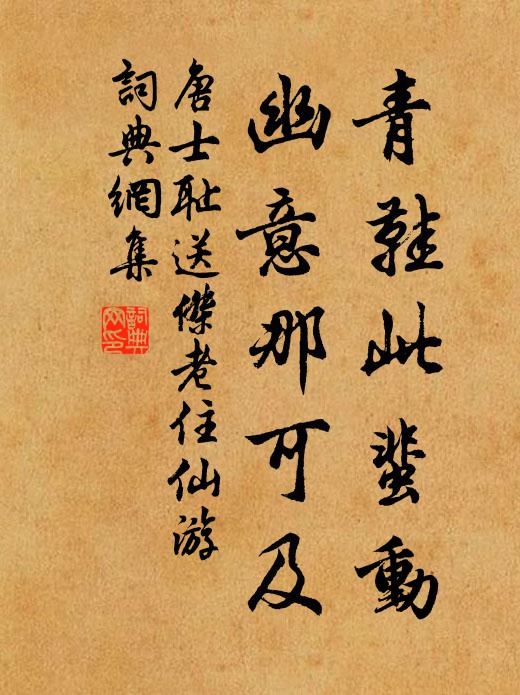 青鞵此蜚動
幽意那可及
唐士耻送傑老住仙游
詞典網集
詞典網印